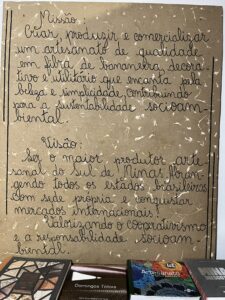 Missão:
Criar, produzir e comercializar
um artesanato de qualidade
em fibra de bananeira, decora-
tivo e utilitário que encanta pela
beleza e simplicidade, contribuindo
para a sustentabilidade socioam-
biental.
Visão:
Ser o maior produtor arte-
sanal do sul de Minas Abran-
gendo todos os estados brasileiros
com sede própria e conquistar
mercados internacionais!
Valorizando o cooperativismo
e a responsabilidade socioam-
biental.
Domingos Tótora
Artesanato